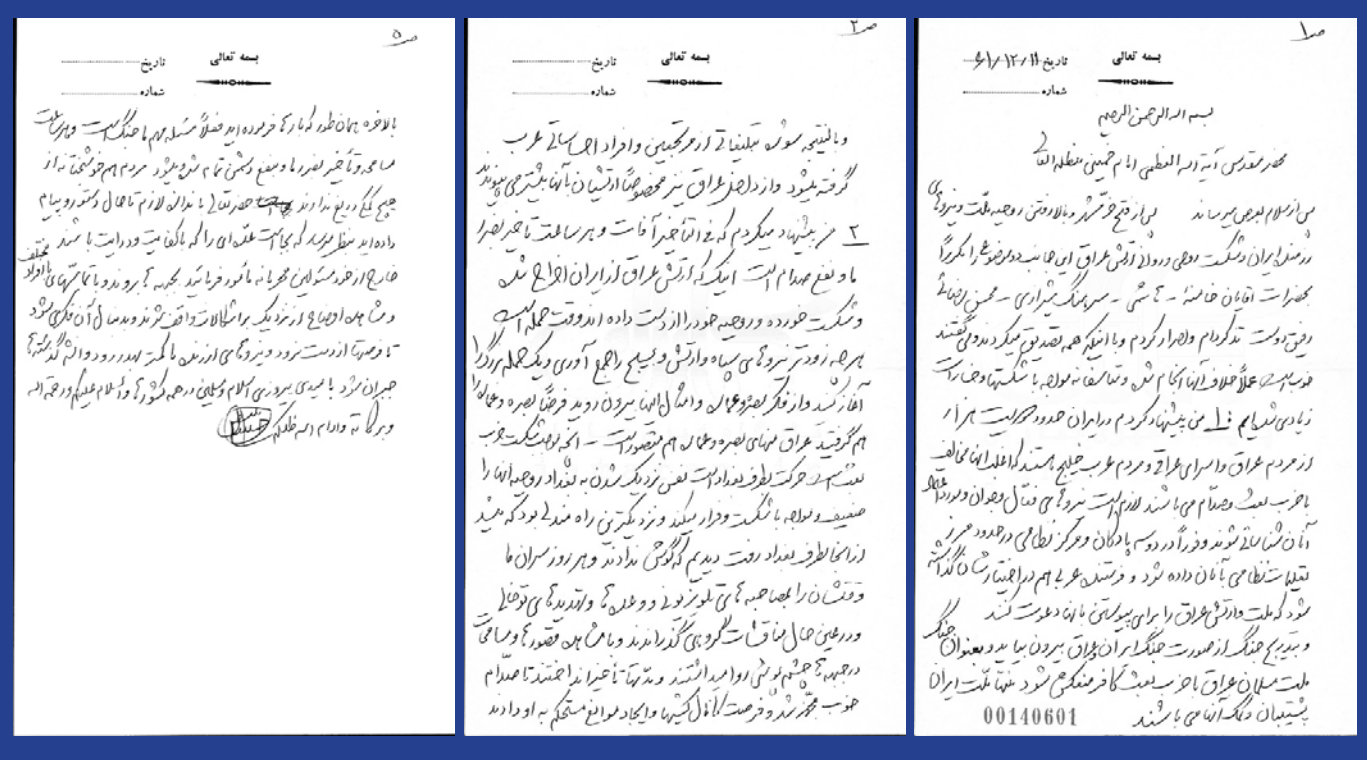 ص ۱
بسمه تعالی
تاریخ ۶۱/۱۲/۱۱
شماره
بسم الله الرحمن الرحیم
محضر مقدس آیة الله العظمی امام خمینی مدظله العالی
پس از سلام بعرض میرساند پس از فتح خرمشهر و بالا رفتن روحیه ملت و نیروهای
رزمنده ایران و شکست روحی و روانی ارتش عراق این جانب دو موضوع را مکرراً
بحضرات آقایان خامنه‌ - هاشمی - سرهنگ شیرازی - محسن رضائی
رفیق دوست تذکر دادم و اصرار کردم و با اینکه همه تصدیق میکردند و می گفتند
خوب است عملاً خلاف آنها انجام شد و متأسفانه مواجه با شکستها و خسارات
زیادی شده ایم ۱ـ من پیشنهاد کردم در ایران حدود دویست هزار
از مردم عراق و اسرای عراقی و مردم عرب خلیج هستند که اغلب آنها مخالف
با حزب بعث و صدام می باشند لازم است نیروهای فعال و جوان و مورد اعتماد
آنان شناسائی شوند و فوراً در دو سه پادگان و مرکز نظامی در حدود مرز
تعلیمات نظامی به آنان داده شود و فرستنده عربی هم در اختیارشان گذاشته
شود که ملت و ارتش عراق را برای پیوستن به آنها دعوت کنند
و بتدریج جنگ از صورت جنگ ایران و عراق بیرون بیاید و بعنوان جنگ
ملت مسلمان عراق با حزب بعث کافر منعکس شود منتها ملت ایران
پشتیبان و کمک آنها می باشند
00140601
ص ۲
بسمه تعالی
تاریخ
شماره
و بالنتیجه سوژه تبلیغاتی از مرتجعین و افراد احساساتی عرب
گرفته میشود و از داخل عراق نیز مخصوصاً ارتشیان به آنها بیشتر می پیوندند
۲ـ من پیشنهاد میکردم که فی التأخیر آفات و هر ساعت تأخیر بضرر
ما و نفع صدام است اینک که ارتش عراق از ایران اخراج شده
و شکست خورده و روحیه خود را از دست داده اند وقت حمله است
هر چه زودتر نیروهای سپاه و ارتش و بسیج را جمع آوری و یک حمله بزرگ را
آغاز کنند و از فکر بصره و عماره و امثال اینها بیرون روید فرضاً بصره و عماره را
هم گرفتید عراق منهای بصره و عماره هم متصور است - آنچه موجب شکست حزب
بعث است حرکت بطرف بغداد است نفس نزدیک شدن به بغداد روحیه آنها را
ضعیف و مواجه با شکست و فرار میکند و نزدیکترین راه مندلی بود که میشد
از آنجا بطرف بغداد رفت دیدیم که گوش ندادند و هر روز سران ما
وقتشان را بمصاحبه های تلویزیونی و وعده ها و تهدیدهای توخالی
و در عین حال مناقشات گروهی گذراندند و با مشاهده قصورها و مسامحه
در جبهه ها چشم پوشی روا میداشتند و مدتها تأخیر انداختند تا صدام
خوب مجهز شد و فرصت کانال کشیها و ایجاد موانع مستحکم به او دادند
ص ۵
بسمه تعالی
تاریخ
شماره
بالاخره همان طور که بارها فرموده اید فعلاً مسئله مهم ما جنگ است و هر ساعت
مسامحه و تأخیر بضرر ما و بنفع دشمن تمام میشود مردم هم خوشبختانه از
هیچ کمکی دریغ ندارند حضرتعالی باندازه لازم تا حال دستور و پیام
داده اید بنظر میرسد که بجا است عده ای را که با کفایت و درایت باشند
خارج از خود مسئولین محرمانه مأمور فرمائید بجبهه ها بروند و با تماسهای مختلف با افراد
و مشاهده اوضاع از نزدیک بر اشکالات واقف شوند و بدنبال آن فکری شود
تا فرصتها از دست نرود و نیروهای ارزنده ما کمتر بهدر رود و انشاءالله گذشته ها
جبران شود با امید پیروزی اسلام و مسلمین در همه کشورها والسلام علیکم و رحمة الله
و برکاته و ادام الله ظلکم